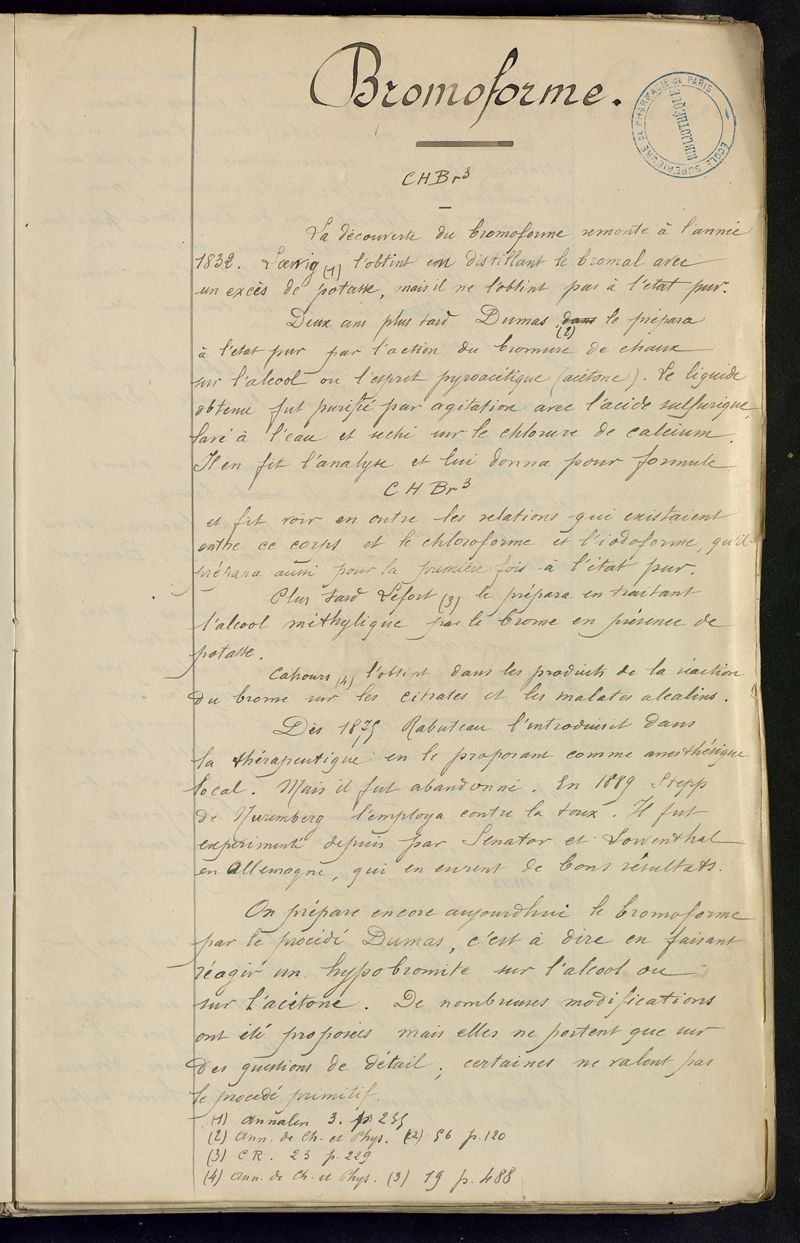 Bromoforme.
ÉCOLE SUPÉRIEURE DE PHARMACIE DE PARIS
BIBLIOTHÈQUE
CHBr³
La découverte du bromoforme remonte à l'année
1832. Lœwig (1) l'obtint en distillant le bromal avec
un excès de potasse, mais il ne l'obtint pas à l'état pur.
Deux ans plus tard Dumas dans (2) le prépara
à l'état pur par l'action du bromure de chaux
sur l'alcool ou l'esprit pyroacétique (acétone). Le liquide
obtenu fut purifié par agitation avec l'acide sulfurique,
lavé à l'eau et séché sur le chlorure de calcium.
Il en fit l'analyse et lui donna pour formule
CHBr³
et fit voir en outre les relations qui existaient
entre ce corps et le chloroforme et l'iodoforme, qu'il
prépara aussi pour la première fois à l'état pur.
Plus tard Lefort (3) le prépara en traitant
l'alcool méthylique par le brome en présence de
potasse.
Cahours (4) l'obtint dans les produits de la réaction
du brome sur les citrates et les malates alcalins.
Dès 1875 Rabuteau l'introduisit dans
la thérapeutique en le proposant comme anesthésique
local. Mais il fut abandonné. En 1889 Stepp
de Nuremberg l'employa contre la toux. Il fut
expérimenté depuis par Senator et Lowenthal
en Allemagne, qui en eurent de bons résultats.
On prépare encore aujourdhui le bromoforme
par le procédé Dumas, c'est à dire en faisant
réagir un hypobromite sur l'alcool ou
sur l'acétone. De nombreuses modifications
ont été proposées mais elles ne portent que sur
des questions de détail ; certaines ne valent pas
le procédé primitif.
(1) Annalen 3. p 295
(2) Ann. de Ch. et Phys. (2) 56 p. 120
(3) C.R. 23 p. 229
(4) Ann. de Ch. et Phys. (3) 19 p. 488